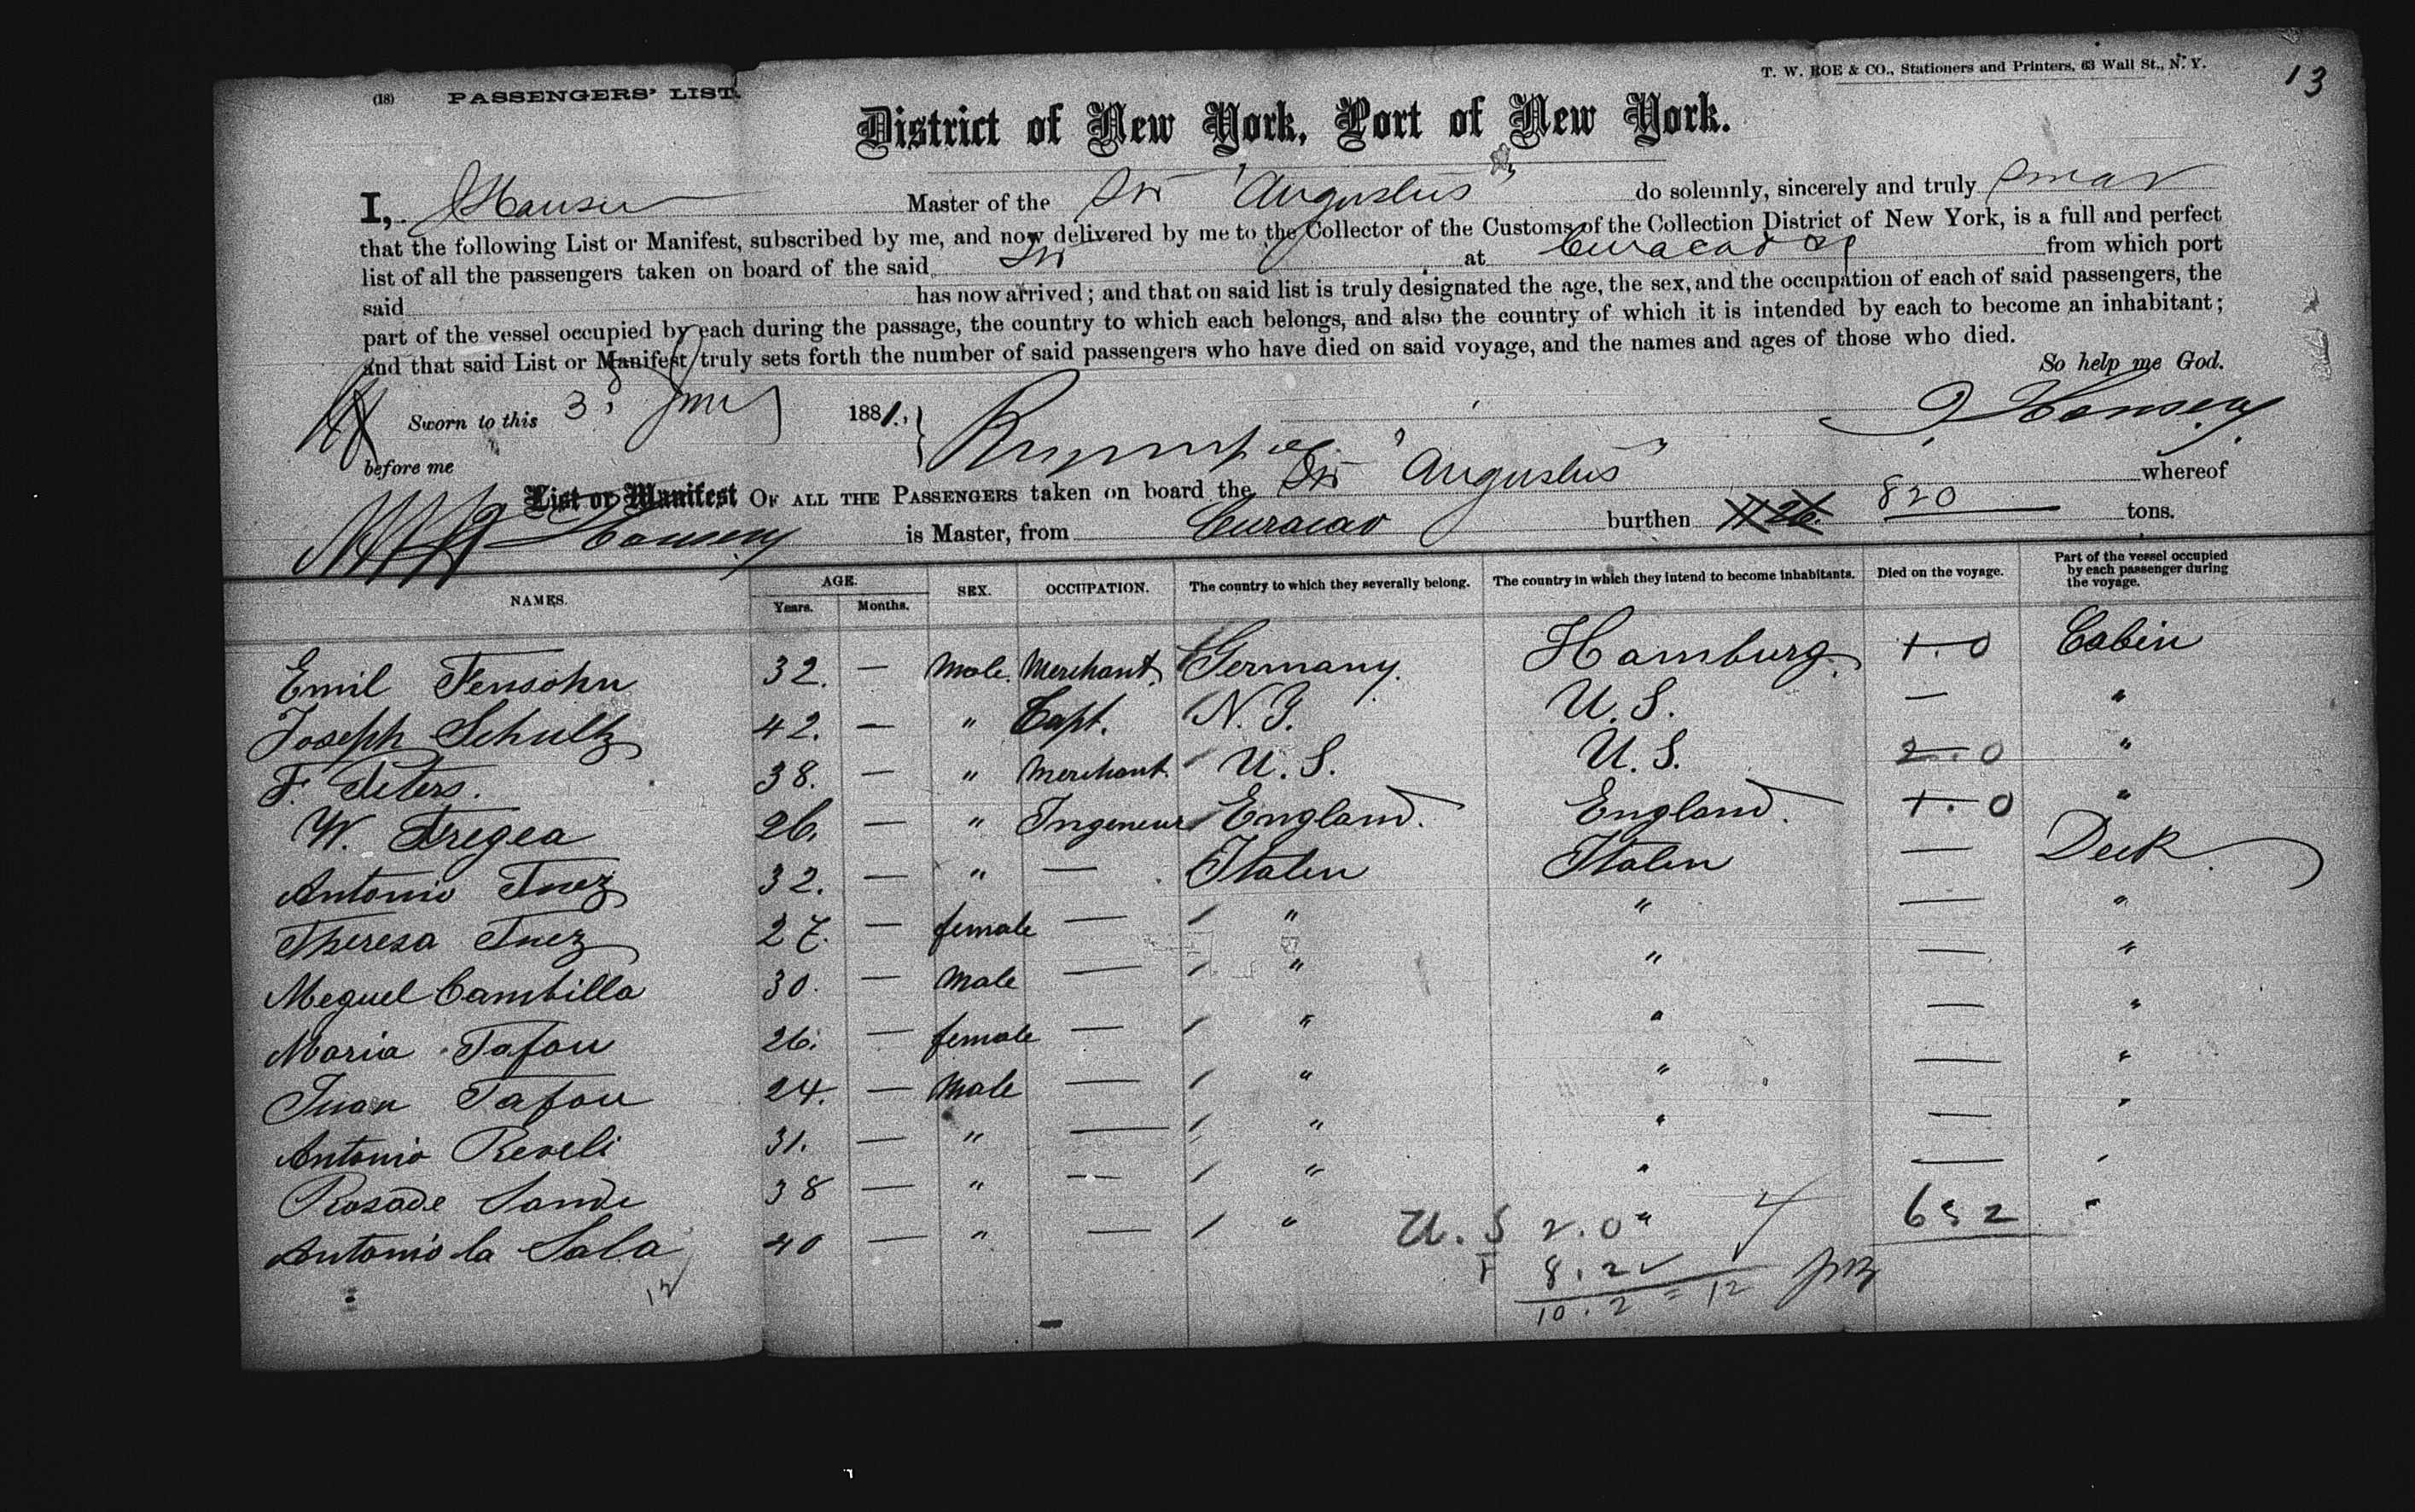 T. W. ROE & CO., Stationers and Printers, 63 Wall St., N. Y.
13
(18) PASSENGERS' LIST.
District of New York, Port of New York.
I, Hansen Master of the Str "Augustus" do solemnly, sincerely and truly swear
that the following List or Manifest, subscribed by me, and now delivered by me to the Collector of the Customs of the Collection District of New York, is a full and perfect
list of all the passengers taken on board of the said Str at Curacao from which port
said has now arrived; and that on said list is truly designated the age, the sex, and the occupation of each of said passengers, the
part of the vessel occupied by each during the passage, the country to which each belongs, and also the country of which it is intended by each to become an inhabitant;
and that said List or Manifest truly sets forth the number of said passengers who have died on said voyage, and the names and ages of those who died.
So help me God.
Sworn to this 3 1881., Hansen
before me
List or Manifest OF ALL THE PASSENGERS taken on board the Str "Augustus" whereof
Hansen is Master, from Curacao burthen 820 tons.
NAMES. AGE. Years. Months. SEX. OCCUPATION. The country to which they severally belong. The country in which they intend to become inhabitants. Died on the voyage. Part of the vessel occupied by each passenger during the voyage.
Emil Fensohn 32. — Male. Merchant. Germany. Hamburg. 1.0 Cabin
Joseph Schultz 42. — " Capt. N. G. U. S. — "
F. Peters. 38. — " Merchant U. S. U. S. 2.0 "
W. Tregea 26. — " Ingeneur England. England. 1.0 "
Antonio Inez 32. — " — Italen Italen — Deck.
Theresa Inez 27. — female — " " — "
Meguel Cambilla 30. — Male — " " — "
Maria Tafou 26. — female — " " — "
Juan Tafou 24. — Male — " " — "
Antonio Reveli 31. — " — " " — "
Rosade Sande 38 — " — " " — "
Antonio la Sala 40 — " — " " 652 "
U. S 2.0
8.2
12 10.2 = 12